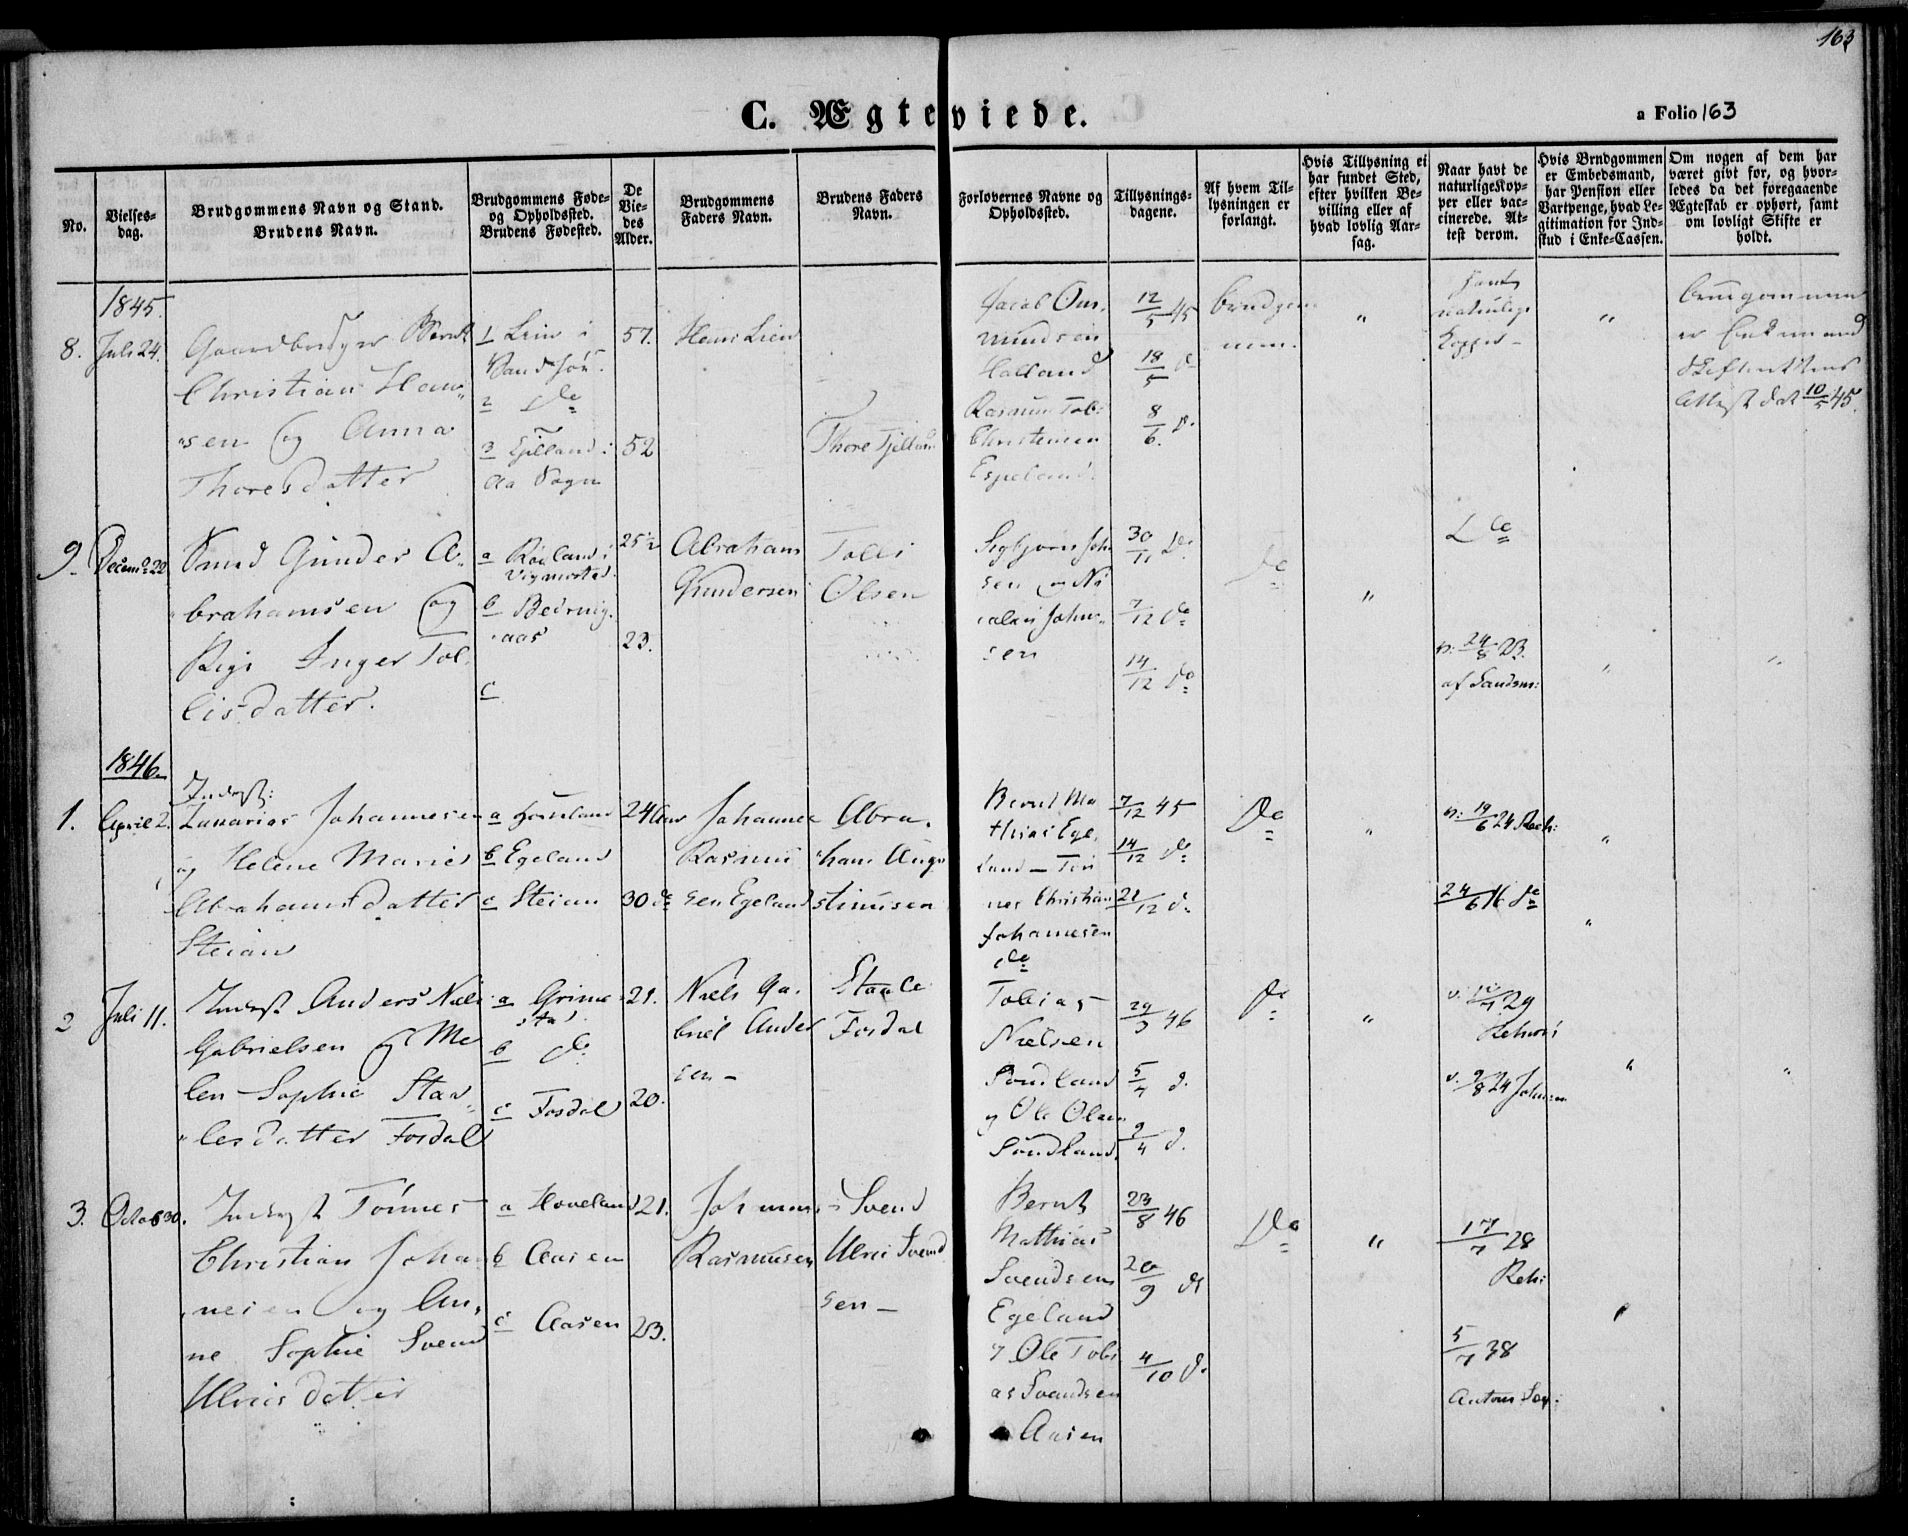 163
C. Ægteviede.
a Folio 163
No.
Vielses-
dag.
Brudgommens Navn og Stand.
Brudens Navn.
Brudgommens Føde-
og Opholdssted.
Brudens Fødested.
De
Vie-
des
Alder.
Brudgommens
Faders Navn.
Brudens Faders
Navn.
Forlovernes Navne og
Opholdssted.
Tillysnings-
dagene.
Af hvem Til-
lysningen er
forlangt.
Hvis Tillysning ei
har fundet Sted,
efter hvilken Be-
villing eller af
hvad lovlig Aar-
sag.
Naar havt de
naturlige Kop-
per eller vac-
cinerede. At-
test derom.
Hvis Brudgommen
er Embedsmand,
har Pension eller
Vartpenge, hvad Le-
gitimation for Ind-
skud i Enke-Cassen.
Om nogen af dem har
været givt før, og hvor-
ledes da det foregaaende
Ægteskab er ophørt, samt
om lovligt Skifte er
holdt.
1845.
8. Juli 24.
Gaardbruger Bernt
Christian Han-
sen og Anna
Thoresdatter
1 Lien i
2 de
3 Fjelland i
Aa Sogn
57.
52
Hans Lien
Jacob Om-
mundsen
Rasmus Tob:
Christensen
Espeland.
12/5 45
18/5 d
8/6. d.
havt
naturlige
Kopper -
"
"
er Enkemand
Attest dat 10/5 45.
9. Decem: 22
Gunder A-
brahamsen og
Pige Inger Tol-
lisdatter.
a
Vigmostad.
b
aas
c
25 1/2
23.
Abraham
Gundersen
Tolli
Olsen
sen
30/11 de
7/12 de
14/12 de
de
"
de
v: 24/8 23.
"
"
1846.
1. April 2.
Inderst:
Zakarias Johannesen
og Helene Marie
Abrahamsdatter
Steian
a
b Egeland
c Steian
24 Aar
30 de
Johannes
Rasmus
sen Egeland
Abra-
ham Augu
stinusen
Bernt Ma
thias Ege-
land - Tøn
nes Christian
Johannesen
de
7/12 45
14/12 de
21/12 d.
de
"
v: 19/6 24 Reh:
24/6 16 de
"
"
2 Juli 11.
Inderst Anders Niels
Gabrielsen og Me
len Sophie Staa-
lesdatter Fosdal
a Grime
stad
b do
c Fosdal
21.
20.
Niels Ga-
briel Ander
sen -
Staale
Fosdal
Tobias
Nielsen
Søndland
og Ole Olsen
Søndland.
29/3 46
5/4 d.
9/4 d.
de
"
v. 9/8 24 Johnsen
"
"
3. Octob 30.
Inderst Tönnes
Christian Johan
nesen og An-
ne Sophie Svend
Ulrisdatter
a Hoveland
b Aasen
c Aasen
21.
23.
Johannes
Rasmusen
Svend
Ulric Svend
sen -
Bernt
Mathias
Svendsen
Egeland
og Ole Tobi
as Svendsen
Aasen
23/8 46
20/9 d
4/10 d.
de
"
17/7 28
Reh:
5/7 38
"